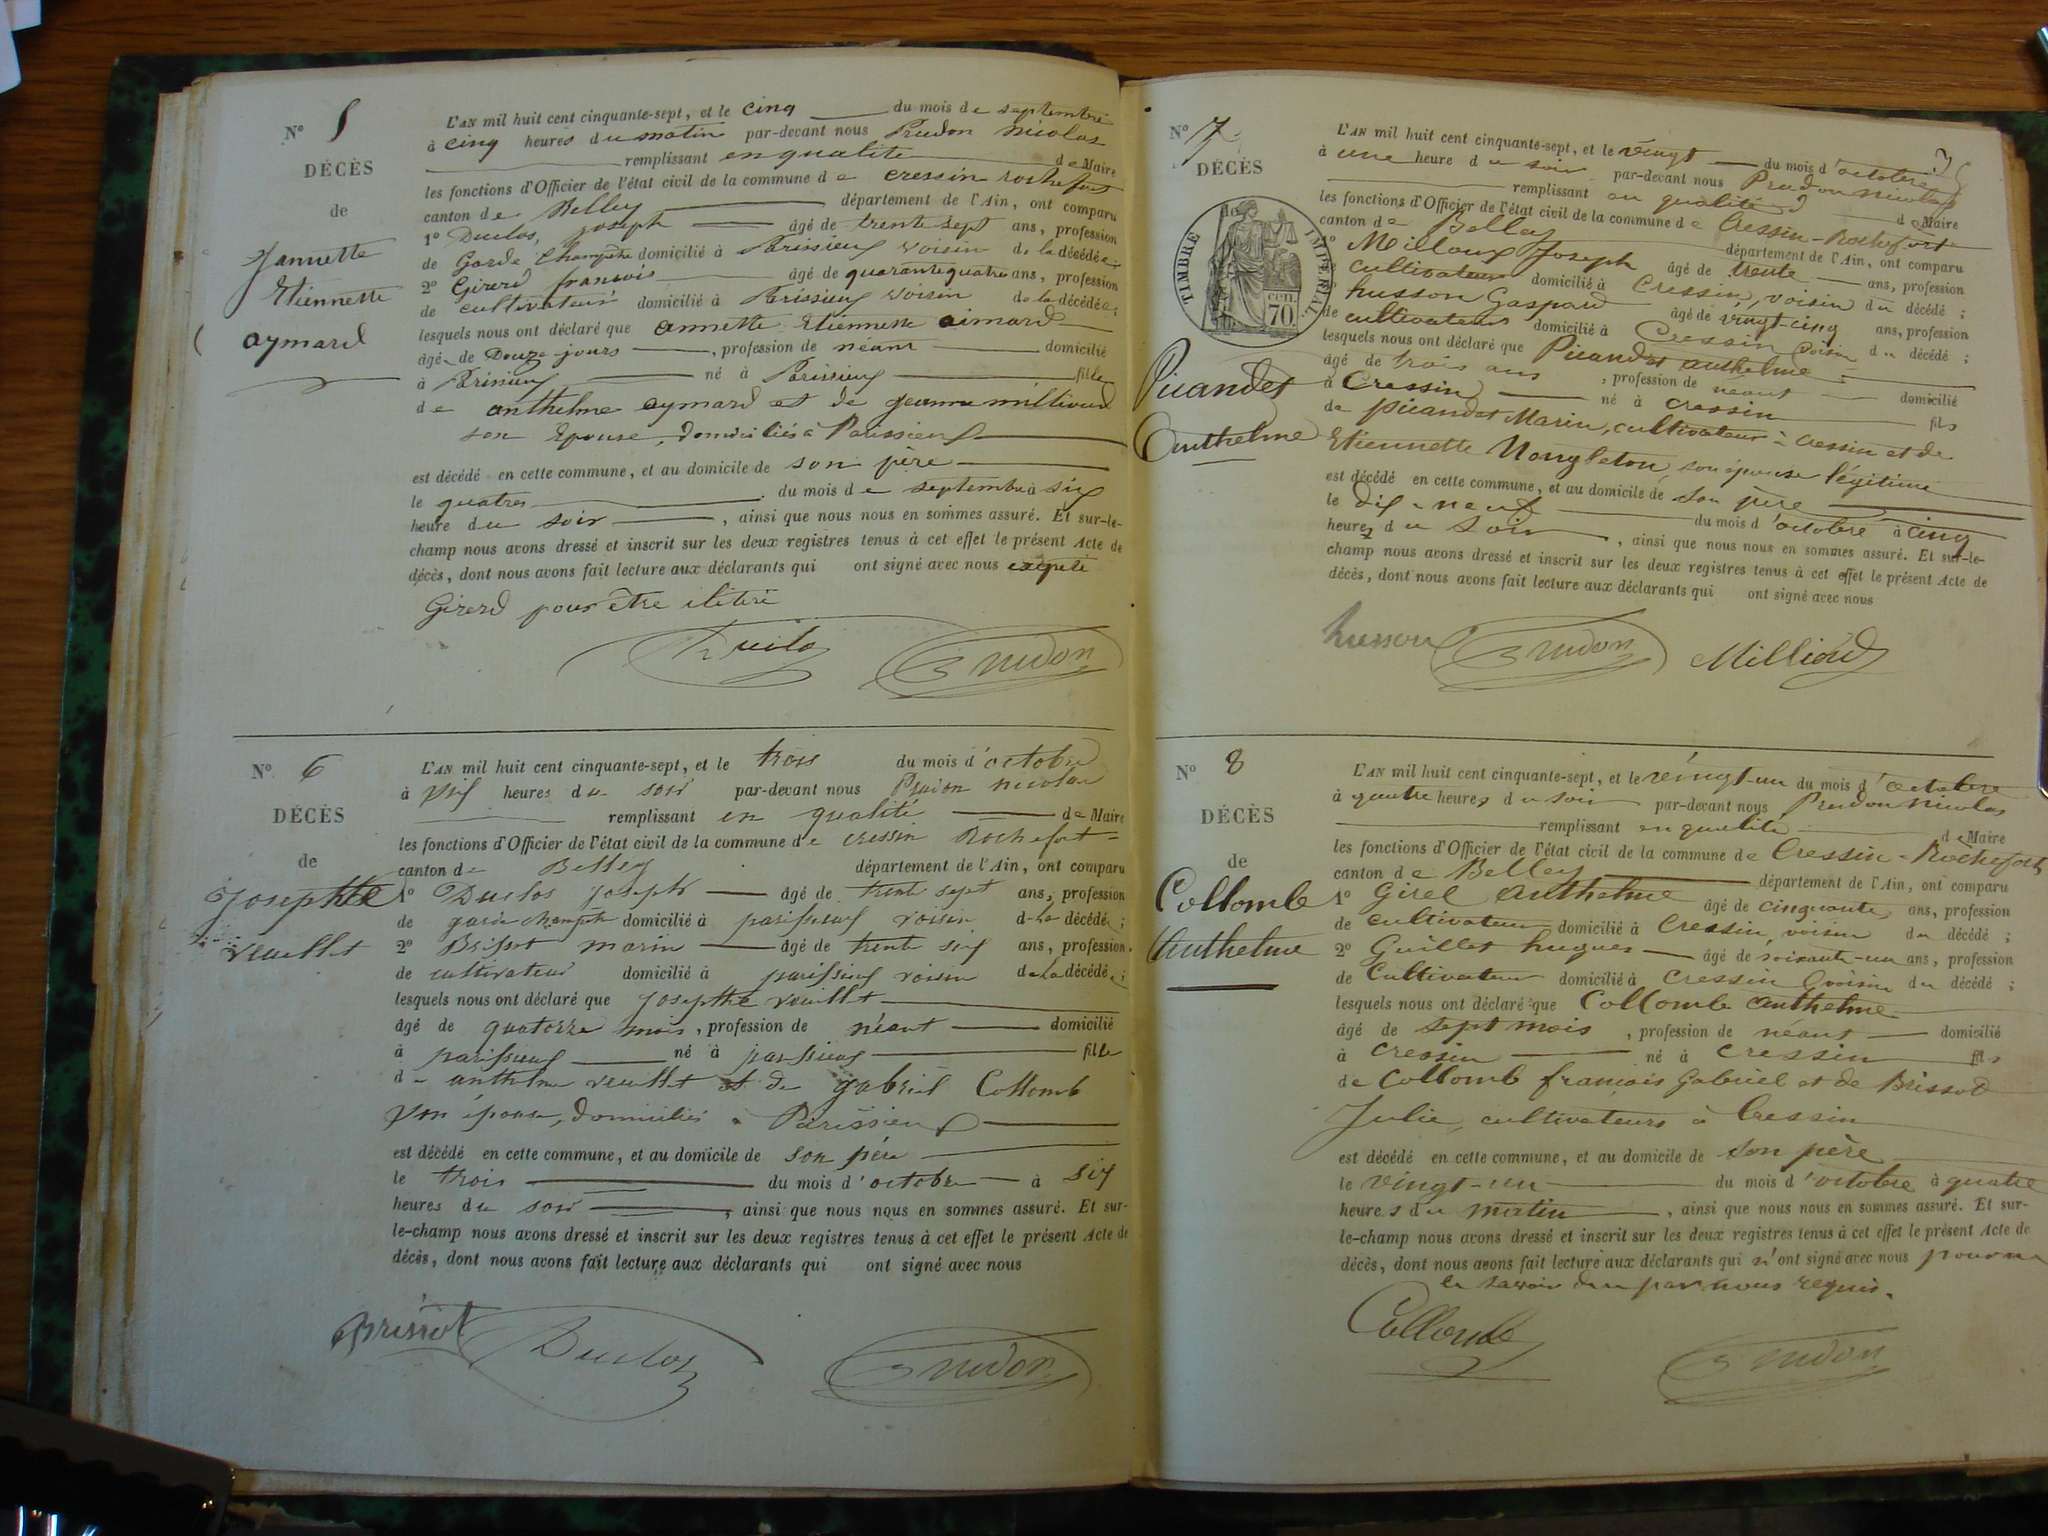 N° 5
DÉCÈS
de
Jannette
Etiennette
aymard
L'AN mil huit cent cinquante-sept, et le cinq du mois de septembre
à cinq heures du matin par-devant nous Prudon Nicolas
remplissant en qualité de Maire
les fonctions d'Officier de l'état civil de la commune de cressin rochefort
canton de Belley département de l'Ain, ont comparu
1° Duclos, joseph âgé de trente sept ans, profession
de Garde Champêtre domicilié à Parissieux voisin de la décédée;
2° Girerd françois âgé de quarante quatre ans, profession
de cultivateur domicilié à Parissieux voisin de la décédée;
lesquels nous ont déclaré que annette Etiennette aimard
âgé de Douze jours, profession de néant domicilié
à Parissieux né à Parissieux fille
de anthelme aymard et de jeanne millioud
son Epouse, domiciliés à Parissieux
est décédé en cette commune, et au domicile de son père
le quatres du mois de septembre à six
heure du soir, ainsi que nous nous en sommes assuré. Et sur-le-
champ nous avons dressé et inscrit sur les deux registres tenus à cet effet le présent Acte de
décès, dont nous avons fait lecture aux déclarants qui ont signé avec nous
Girerd pour être
Duclos Prudon
N° 6
DÉCÈS
de
Josephte
veuillet
L'AN mil huit cent cinquante-sept, et le trois du mois d'octobre
à heures du soir par-devant nous Prudon nicolas
remplissant en qualité de Maire
les fonctions d'Officier de l'état civil de la commune de cressin Rochefort
canton de Belley département de l'Ain, ont comparu
1° Duclos joseph âgé de trent sept ans, profession
de garde champêtre domicilié à parissieux voisin de la décédée;
2° Brissot marin âgé de trente six ans, profession
de cultivateur domicilié à parissieux voisin de la décédée;
lesquels nous ont déclaré que josephte veuillet
âgé de quatorze mois, profession de néant domicilié
à parissieux né à parissieux fille
de anthelme veuillet et de gabriel Collomb
son épouse, domiciliés à Parissieux
est décédé en cette commune, et au domicile de son père
le trois du mois d'octobre à six
heures du soir, ainsi que nous nous en sommes assuré. Et sur-
le-champ nous avons dressé et inscrit sur les deux registres tenus à cet effet le présent Acte de
décès, dont nous avons fait lecture aux déclarants qui ont signé avec nous
Brissot Duclos Prudon
N° 7
DÉCÈS
de
TIMBRE IMPÉRIAL
cen.
70.
Picandet
Anthelme
L'AN mil huit cent cinquante-sept, et le vingt du mois d'octobre
à une heure du soir par-devant nous Prudon Nicolas
remplissant en qualité de Maire
les fonctions d'Officier de l'état civil de la commune de Cressin-Rochefort
canton de Belley département de l'Ain, ont comparu
1° Millioux Joseph âgé de trente ans, profession
cultivateur domicilié à Cressin, voisin du décédé;
husson Gaspard âgé de vingt-cinq ans, profession
de cultivateur domicilié à Cressin voisin du décédé;
lesquels nous ont déclaré que Picandet anthelme
âgé de trois ans, profession de néant domicilié
à Cressin né à cressin fils
de picandet Marin, cultivateur à cressin et de
Etiennette Mongleton, son épouse légitime
est décédé en cette commune, et au domicile de son père
le dix-neuf du mois d'octobre à cinq
heures du soir, ainsi que nous nous en sommes assuré. Et sur-le-
champ nous avons dressé et inscrit sur les deux registres tenus à cet effet le présent Acte de
décès, dont nous avons fait lecture aux déclarants qui ont signé avec nous
husson Prudon Millioud
N° 8
DÉCÈS
de
Collomb
Anthelme
L'AN mil huit cent cinquante-sept, et le vingt-un du mois d'octobre
à quatre heures du soir par-devant nous Prudon Nicolas
remplissant en qualité de Maire
les fonctions d'Officier de l'état civil de la commune de Cressin-Rochefort
canton de Belley département de l'Ain, ont comparu
1° Girel Anthelme âgé de cinquante ans, profession
de cultivateur domicilié à Cressin, voisin du décédé;
2° Guillet hugues âgé de soixante-un ans, profession
de Cultivateur domicilié à cressin voisin du décédé;
lesquels nous ont déclaré que Collomb anthelme
âgé de sept mois, profession de néant domicilié
à Cressin né à Cressin fils
de Collomb françois Gabriel et de Brissot
Julie, cultivateurs à Cressin
est décédé en cette commune, et au domicile de son père
le vingt-un du mois d'octobre à quatre
heures du matin, ainsi que nous nous en sommes assuré. Et sur-
le-champ nous avons dressé et inscrit sur les deux registres tenus à cet effet le présent Acte de
décès, dont nous avons fait lecture aux déclarants qui n'ont signé avec nous pour ne
le savoir de ce par nous requis.
Collomb Prudon